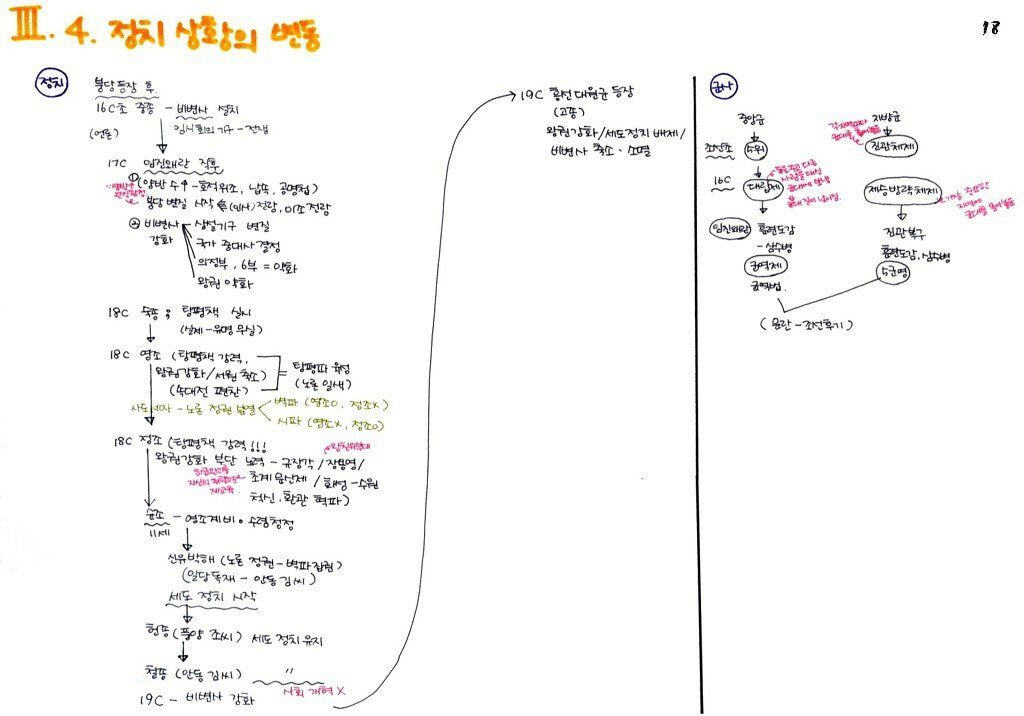 III. 4. 정치 상황의 변동
18
정치
붕당등장 후.
16C초 중종 - 비변사 설치
(언론) 임시회의기구 - 전쟁
17C 임진왜란 직후
① (양반 수↑ - 호적위조, 납속, 공명첩)
붕당 변질 시작 (인사) 전랑, 이조전랑
② 비변사 강화
상설기구 변질
국가 중대사 결정
의정부, 6부 = 약화
왕권 약화
18C 숙종 ; 탕평책 실시
(실제 - 유명무실)
18C 영조 (탕평책 강력,
왕권강화/서원 축소)
(속대전 편찬)
탕평파 육성
(노론 일색)
사도세자 - 노론 정권
벽파 (영조O, 정조X)
시파 (영조X, 정조O)
18C 정조 (탕평책 강력!!!
왕권강화 부단 노력 - 규장각/장용영/
왕친위부대
초계문신제 / 화성 - 수원
재교육
척신, 환관 혁파)
순조 - 영조계비 수렴청정
11세
신유박해 (노론 정권 - 벽파집권)
(일당독재 - 안동김씨)
세도 정치 시작
헌종 (풍양 조씨) 세도 정치 유지
철종 (안동 김씨) "
사회 개혁 X
19C - 비변사 강화
19C 흥선대원군 등장
(고종)
왕권강화/세도정치 배제/
비변사 축소·소멸
군사
중앙군 지방군
조선초 5위 진관체제
16C 대립제 제승방략체제
다른 사람을 대신
군대에 보냄
가장 중요한
지역에
군대를
임진왜란 훈련도감
- 삼수병
균역법.
진관복구
훈련도감, 삼수병
5군영
(용란 - 조선후기)